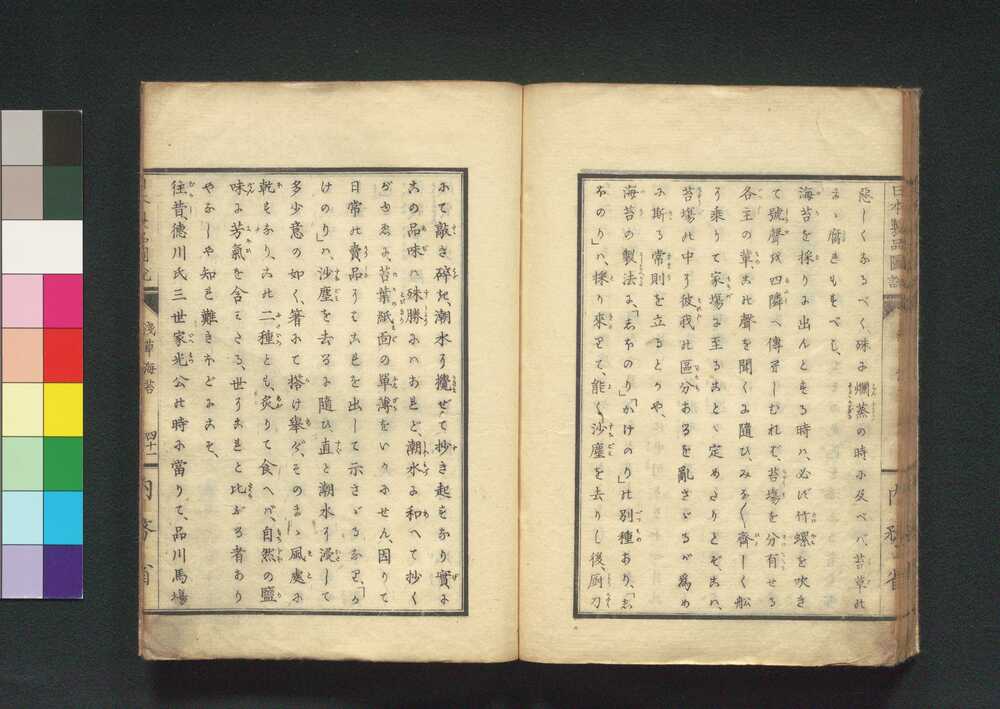 日本製品圖説
惡しくなるべく殊に爛蒸の時に及べバ苔草の
まゝ腐きもすべし、
海苔を採りに出んとする時ハ、必ず竹螺を吹き
て號聲を四隣へ傳しむれば、苔場を分有せる
各主の輩、この聲を聞くに隨ひ、みな〱齊しく舩
に乗りて家場に至ることゝ定めたりとぞ、こハ、
苔場の中に彼我の區分あるを亂さゞるが爲め
に斯る常則を立るとかや、
海苔の製法に、「しおのり」「かけのり」の別種あり、「し
おのり」ハ、採り來りて、能く沙塵を去りし後、厨刀
にて敲き碎き、潮水に攪ぜて抄き起すなり實に
この品味ハ殊勝にハあれど、潮水に和へて抄く
がゆゑに、苔葉紙面の單薄をいかにせん、因りて
日常の賣品にこれを出して示さゞるなり、「か
けのり」ハ、沙塵を去るに隨ひ直と潮水に浸して
多少意の如く、箸にて搭け擧げ、そのまゝ風處に
乾すなり、この二種とも、炙りて食へバ、自然の鹽
味に芳氣を含ミたる、世にこれと比ぶる者あり
やなしや知り難きほどにこそ、
往昔、德川氏三世家光公の時に當りて、品川馬場
淺草海苔
四十一
内務省